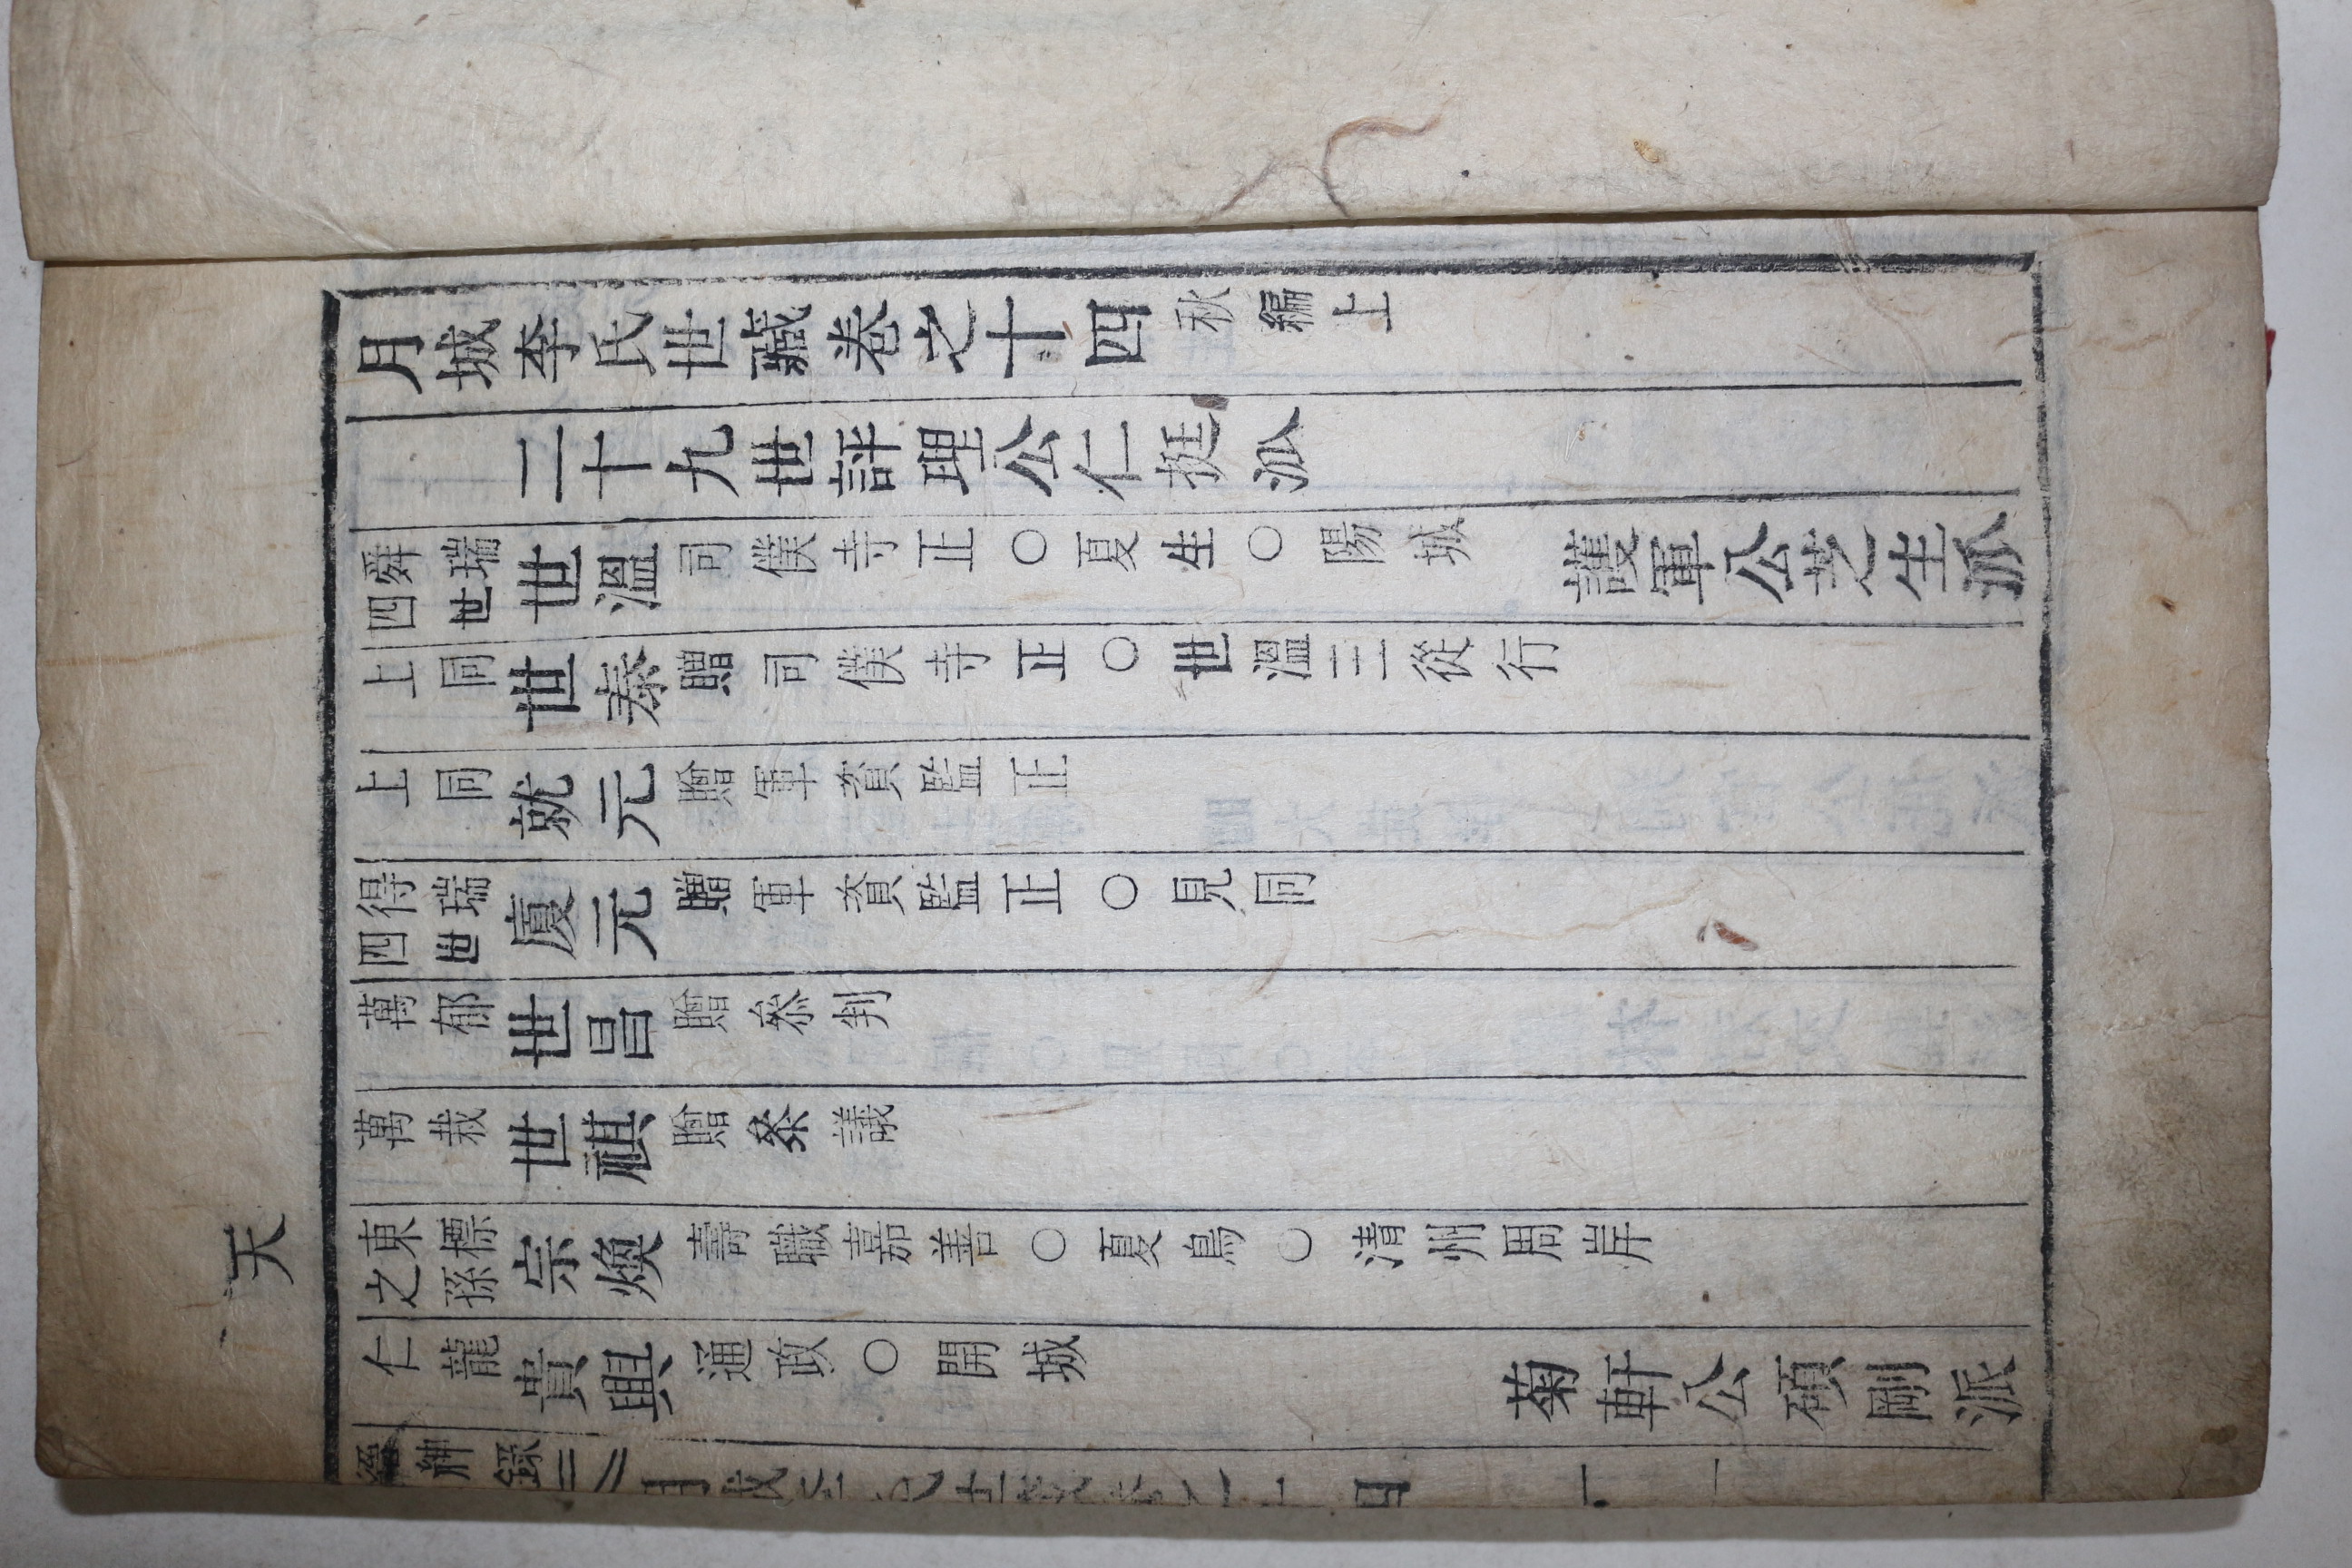 月城李氏世藏卷之十四 秋編上
二十九世評理公仁挺派
舜瑞四世 世溫 司僕寺正○夏生○陽城 護軍公芝生派
上同 世泰 贈司僕寺正○世溫三從行
上同 就元 贈軍資監正
得瑞四世 廈元 贈軍資監正○見同
萬郁 世昌 贈參判
萬栽 世祺 贈參議
東標之孫 宗煥 壽職嘉善○夏鳥○清州周岸
仁龍 貴興 通政○開城 菊軒公碩剛派
天